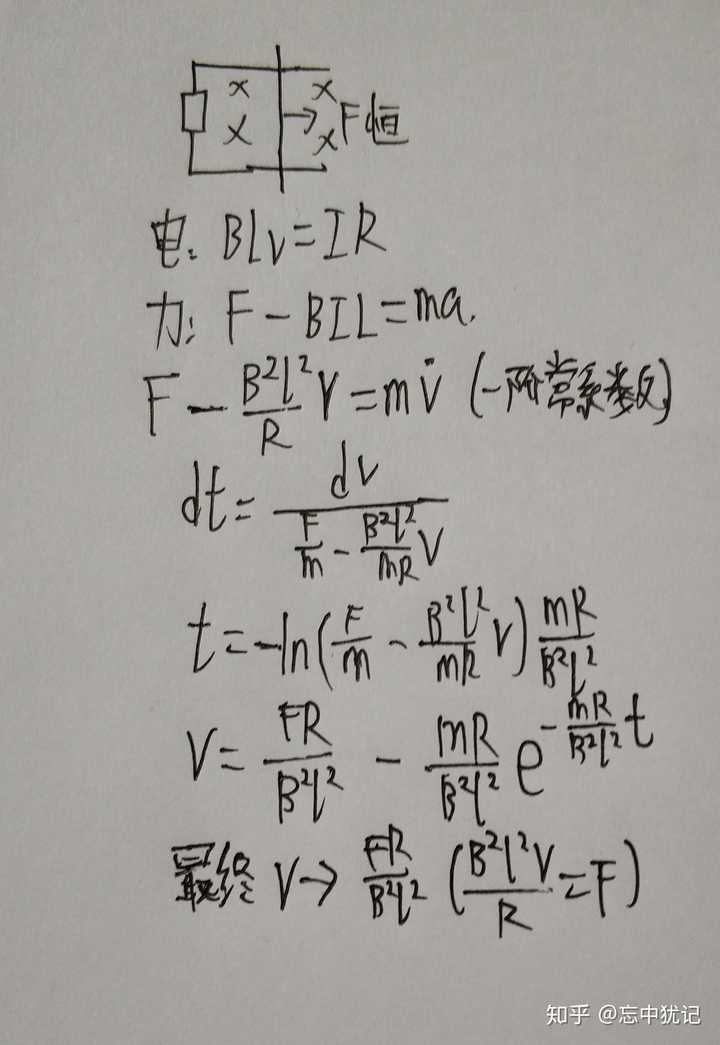 × × F恒
× ×
电: BLv=IR
力: F-BIL=ma.
F - \frac{B²l²}{R} v = m\dot{v} (一阶常系数)
dt = \frac{dv}{\frac{F}{m} - \frac{B²l²}{mR} v}
t = -ln(\frac{F}{m} - \frac{B²l²}{mR} v) \frac{mR}{B²l²}
v = \frac{FR}{B²l²} - \frac{mR}{B²l²} e^{-\frac{mR}{B²l²} t}
最终 v→ \frac{FR}{B²l²} (\frac{B²l²v}{R} = F)
知乎 @忘中犹记